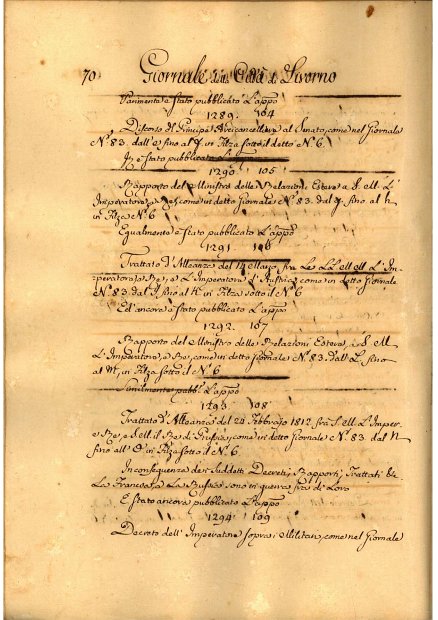 70 Giornale della Città di Livorno
Parimente è stato pubblicato l'appo
1289. 104
Discorso del Principe Arcicancelliere al Senato, come nel Giornale
N.º 83. dall' e fino al in filza sotto il detto N. 6.
In è stato pubblicato
1290 105
Rapporto del Ministro delle Relazioni Estere a S. M. L'
Imperatore, e Re, come in detto Giornale N.º 83. dal fino al h
in filza N.º 6
Egualmente è stato pubblicato l'appo
1291. 106
Trattato d'Alleanza del 14 Marzo fra Le LL. MM. L'Im-
peratore, e Re, e L'Imperatore d'Austria, come in detto Giornale
N.º 83. dal fino al in filza sotto il N.º 6
Ed ancora è stato pubblicato l'appo
1292. 107
Rapporto del Ministro delle Relazioni Estere, a S. M.
L'Imperatore, e Re, come in detto Giornale N.º 83. dall' L. fino
al M, in filza sotto il N.º 6
Similmente pubbº. l'appo
1293 108
Trattato d'Alleanza del 24 Febbrajo 1812 fra S. M. Imper.
e Re, e S. M. il Re di Prussia, come in detto Giornale N.º 83 dal N
fino all' O in filza sotto il N.º 6.
In conseguenza dei suddetti Decreti, Rapporti, Trattati &c.
La Francia, e La Russia sono in guerra fra di Loro
È stato ancora pubblicato l'appo
1294 109
Decreto dell' Imperatore sopra i Militari, come nel Giornale